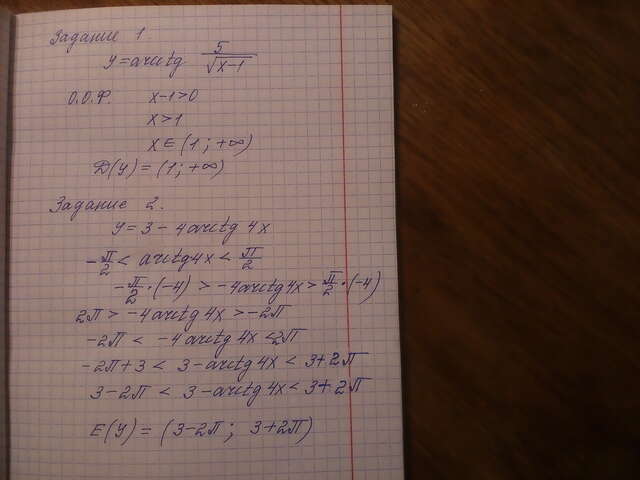 Задание 1.
y = arctg 5/√(x-1)
О.О.Ф. x-1>0
x>1
x∈(1; +∞)
D(y) = (1; +∞)
Задание 2.
y = 3 - 4arctg 4x
-π/2 < arctg4x < π/2
-π/2·(-4) > -4arctg4x > π/2·(-4)
2π > -4arctg 4x > -2π
-2π < -4arctg 4x < 2π
-2π+3 < 3-arctg 4x < 3+2π
3-2π < 3-arctg4x < 3+2π
E(y) = (3-2π; 3+2π)